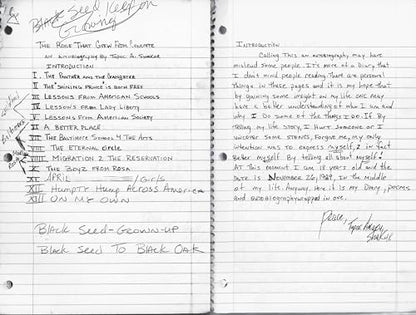 Black Seed Keep on
Growing
The Rose That Grew From Concrete
An Autobiography By Tupac A. Shakur
INTRODUCTION
I. The Panther and the Gangster
II The "Shining Prince" is Born Free
III Lessons From American Schools
IV Lessons From Lady Liberty
V Lessons From American Society
VI A Better Place
VII The Baltimore School 4 The Arts
VIII The Eternal Circle
VIIII Migration 2 The Reservation
X The Boyz From Rosa
XI APRIL / Girls
XII Humpty Hump Across America
XIII ON MY OWN
Black Seed-Grown-up
Black Seed To Black Oak
Introduction
Calling This an autobiography may have
mislead some people. It's more of a Diary that
I don't mind people reading. There are personal
Things in these pages and it is my hope that
by gaining some insight on my life one may
have a better understanding of who I am and
why I Do some of the things I Do. If By
Telling my life story, I Hurt Someone or I
uncover Some secrets, Forgive me, my only
intention was to express myself, & in fact
Better myself By telling all about myself!
At this moment I am 18 years old and the
DATE is November 26, 1989, In the Middle
of my life. Anyway, Here it is my Diary, poems
and autobiography wrapped in one.
Peace,
Tupac Amaru
Shakur